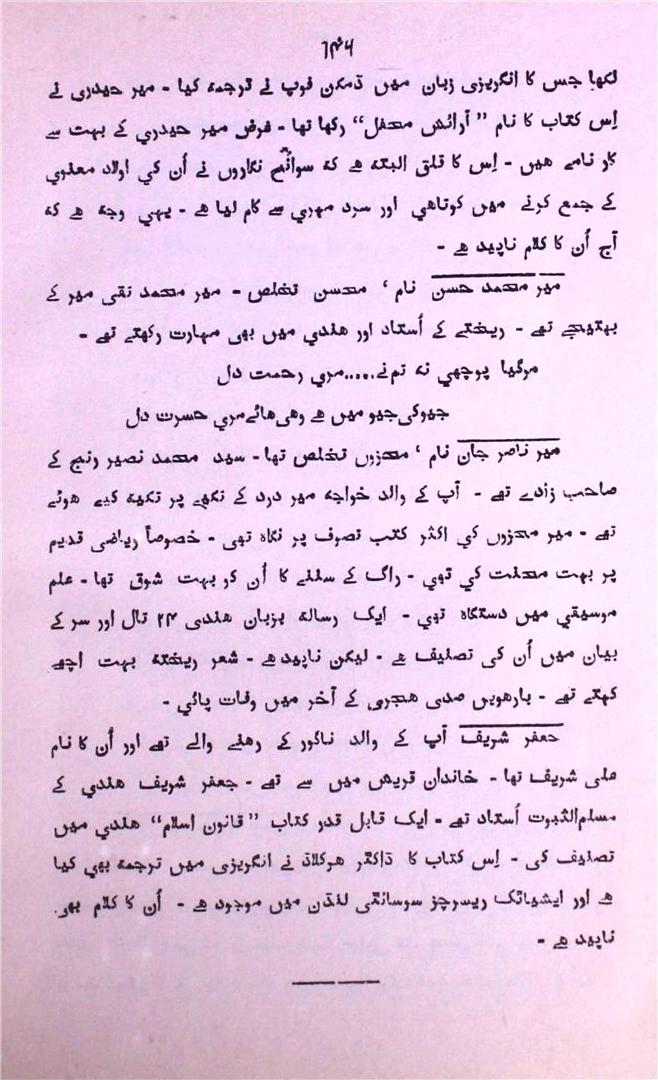 ۱۴۶
لکھا جس کا انگریزی زبان میں ڈنکن فوپ نے ترجمہ کیا - میر حیدری نے
اِس کتاب کا نام ”آرائش محفل“ رکھا تھا - غرض میر حیدری کے بہت سے
کار نامے هیں - اِس کا قلق البتہ هے کہ سوانح نگاروں نے اُن کی اولاد معنوی
کے جمع کرنے میں کوتاهی اور سرد مہری سے کام لیا هے - یہی وجہ هے کہ
آج اُن کا کلام ناپید هے -
میر محمد حسن نام ، محسن تخلص - میر محمد تقی میر کے
بھتیجے تھے - ریختے کے اُستاد اور هندی میں بھی مہارت رکھتے تھے -
مرگیا پوچھی نہ تم نے.....مری رحمت دل
جیوکی جیو میں هے وهی هائے مری حسرت دل
میر ناصر جان نام ، محزوں تخلص تھا - سید محمد نصیر رنج کے
صاحب زادے تھے - آپ کے والد خواجہ میر درد کے تکیے پر تکیہ کیے هوئے
تھے - میر محزوں کی اکثر کتب تصوف پر نگاہ تھی - خصوصاً ریاضی قدیم
پر بہت محنت کی تھی - راگ کے سننے کا اُن کو بہت شوق تھا - علم
موسیقی میں دستگاہ تھی - ایک رسالہ بزبان هندی ۲۴ تال اور سر کے
بیان میں اُن کی تصنیف هے - لیکن ناپید هے - شعر ریختہ بہت اچھے
کہتے تھے - بارهویں صدی هجری کے آخر میں وفات پائی -
جعفر شریف آپ کے والد ناگور کے رهنے والے تھے اور اُن کا نام
علی شریف تھا - خاندان قریش میں سے تھے - جعفر شریف هندی کے
مسلم الثبوت اُستاد تھے - ایک قابل قدر کتاب ”قانون اسلام“ هندی میں
تصنیف کی - اِس کتاب کا ڈاکٹر هرکلاٹ نے انگریزی میں ترجمہ بھی کیا
هے اور ایشیاٹک ریسرچز سوسائٹی لندن میں موجود هے - اُن کا کلام بھی
ناپید هے -